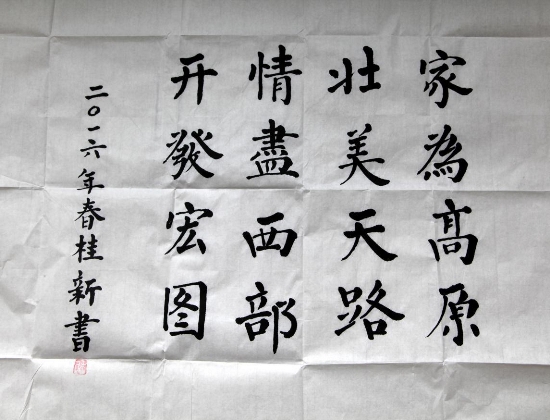 家為高原
壮美天路
情盡西部
开發宏图
二〇一六年春桂新書